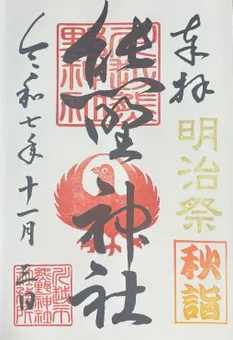 奉拝
明治祭
秋詣
熊野神社
川越熊野神社
令和七年十一月三日
川越市熊野神社社務所